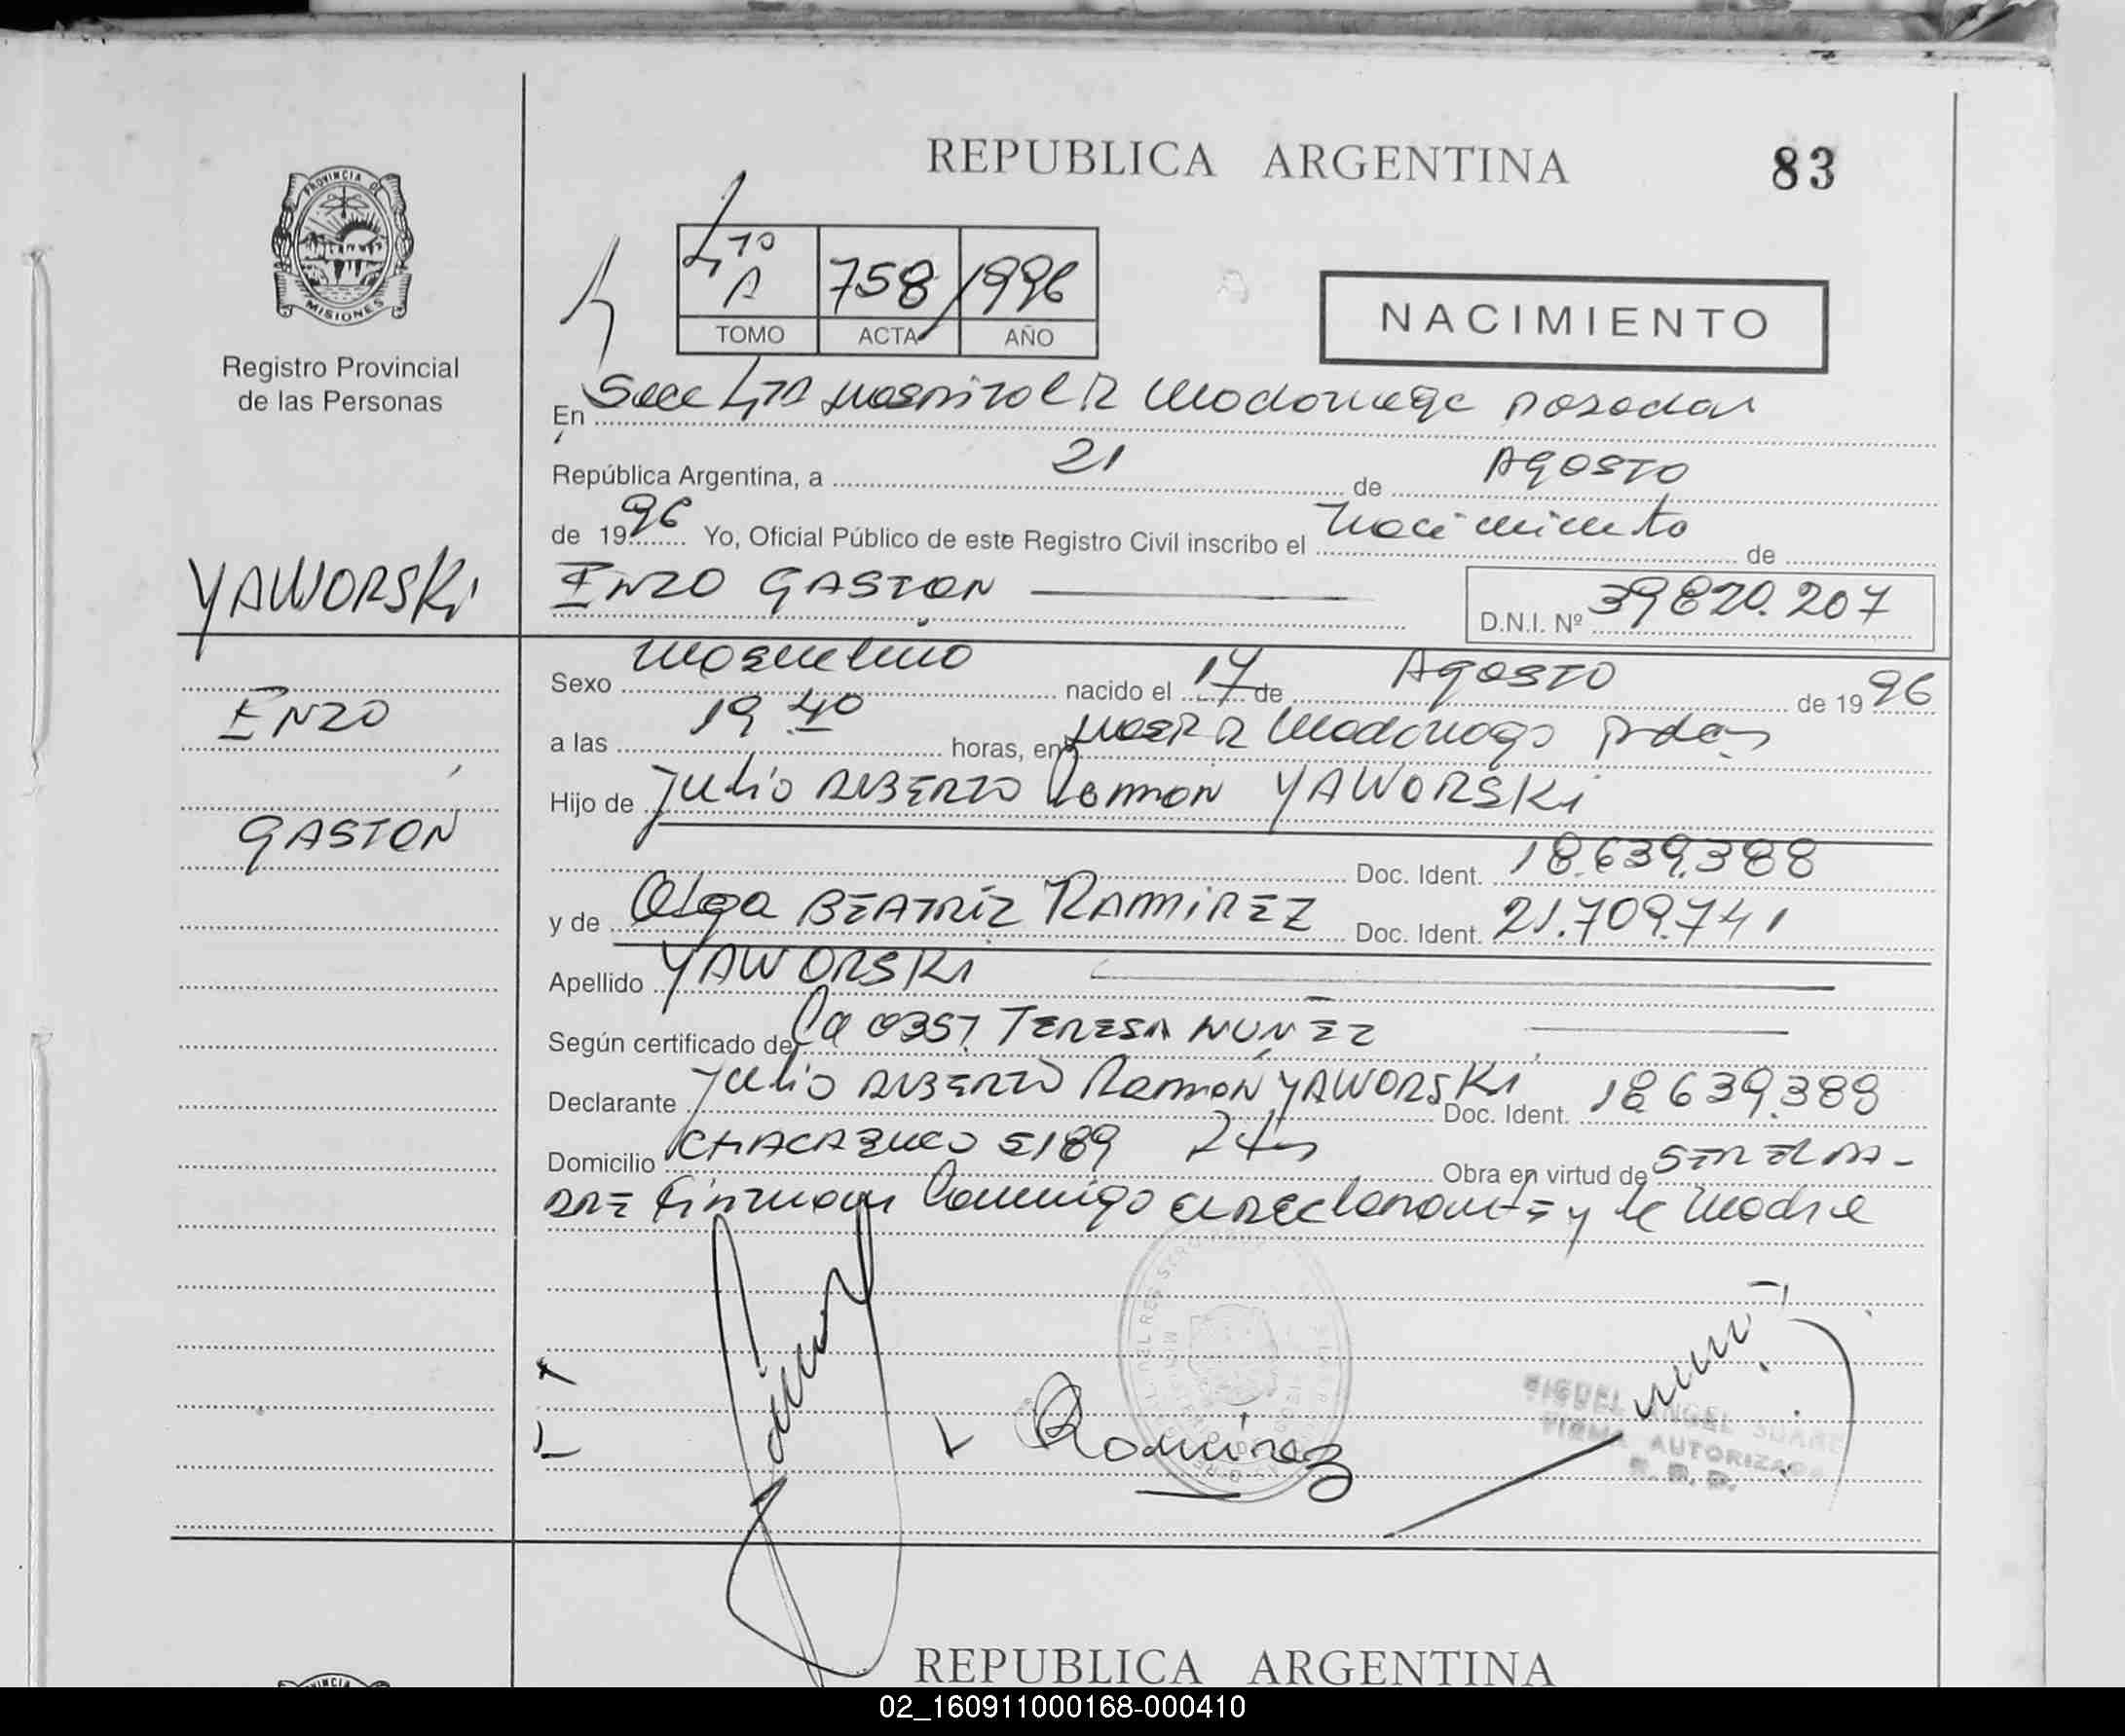 REPUBLICA ARGENTINA
83
PROVINCIA DE
MISIONES
Registro Provincial
de las Personas
4 4ta A 758 1996
TOMO ACTA AÑO
NACIMIENTO
En Secc 4ta Hospital R Madariaga Posadas
República Argentina, a 21 de AGOSTO
de 1996 Yo, Oficial Público de este Registro Civil inscribo el Nacimiento de
YAWORSKi
ENZO GASTON
D.N.I. Nº 39820.207
Sexo Masculino nacido el 17 de AGOSTO de 1996
ENZO
a las 19.40 horas, en Hosp R Madariaga Pdas
GASTON
Hijo de Julio ALBERTO Ramon YAWORSKi
Doc. Ident. 18.639.388
y de Olga BEATRiZ RAMiREZ Doc. Ident. 21.709.741
Apellido YAWORSKi
Según certificado de La OBST TERESA NUÑEZ
Declarante Julio ALBERTO Ramon YAWORSKi Doc. Ident. 18.639.388
Domicilio CHACABUCO 5189 Obra en virtud de SER EL PA-
DRE Firman Conmigo el DEClarante y la Madre
Ramirez
MIGUEL ANGEL SUAREZ
FIRMA AUTORIZADA
REPUBLICA ARGENTINA
02_160911000168-000410